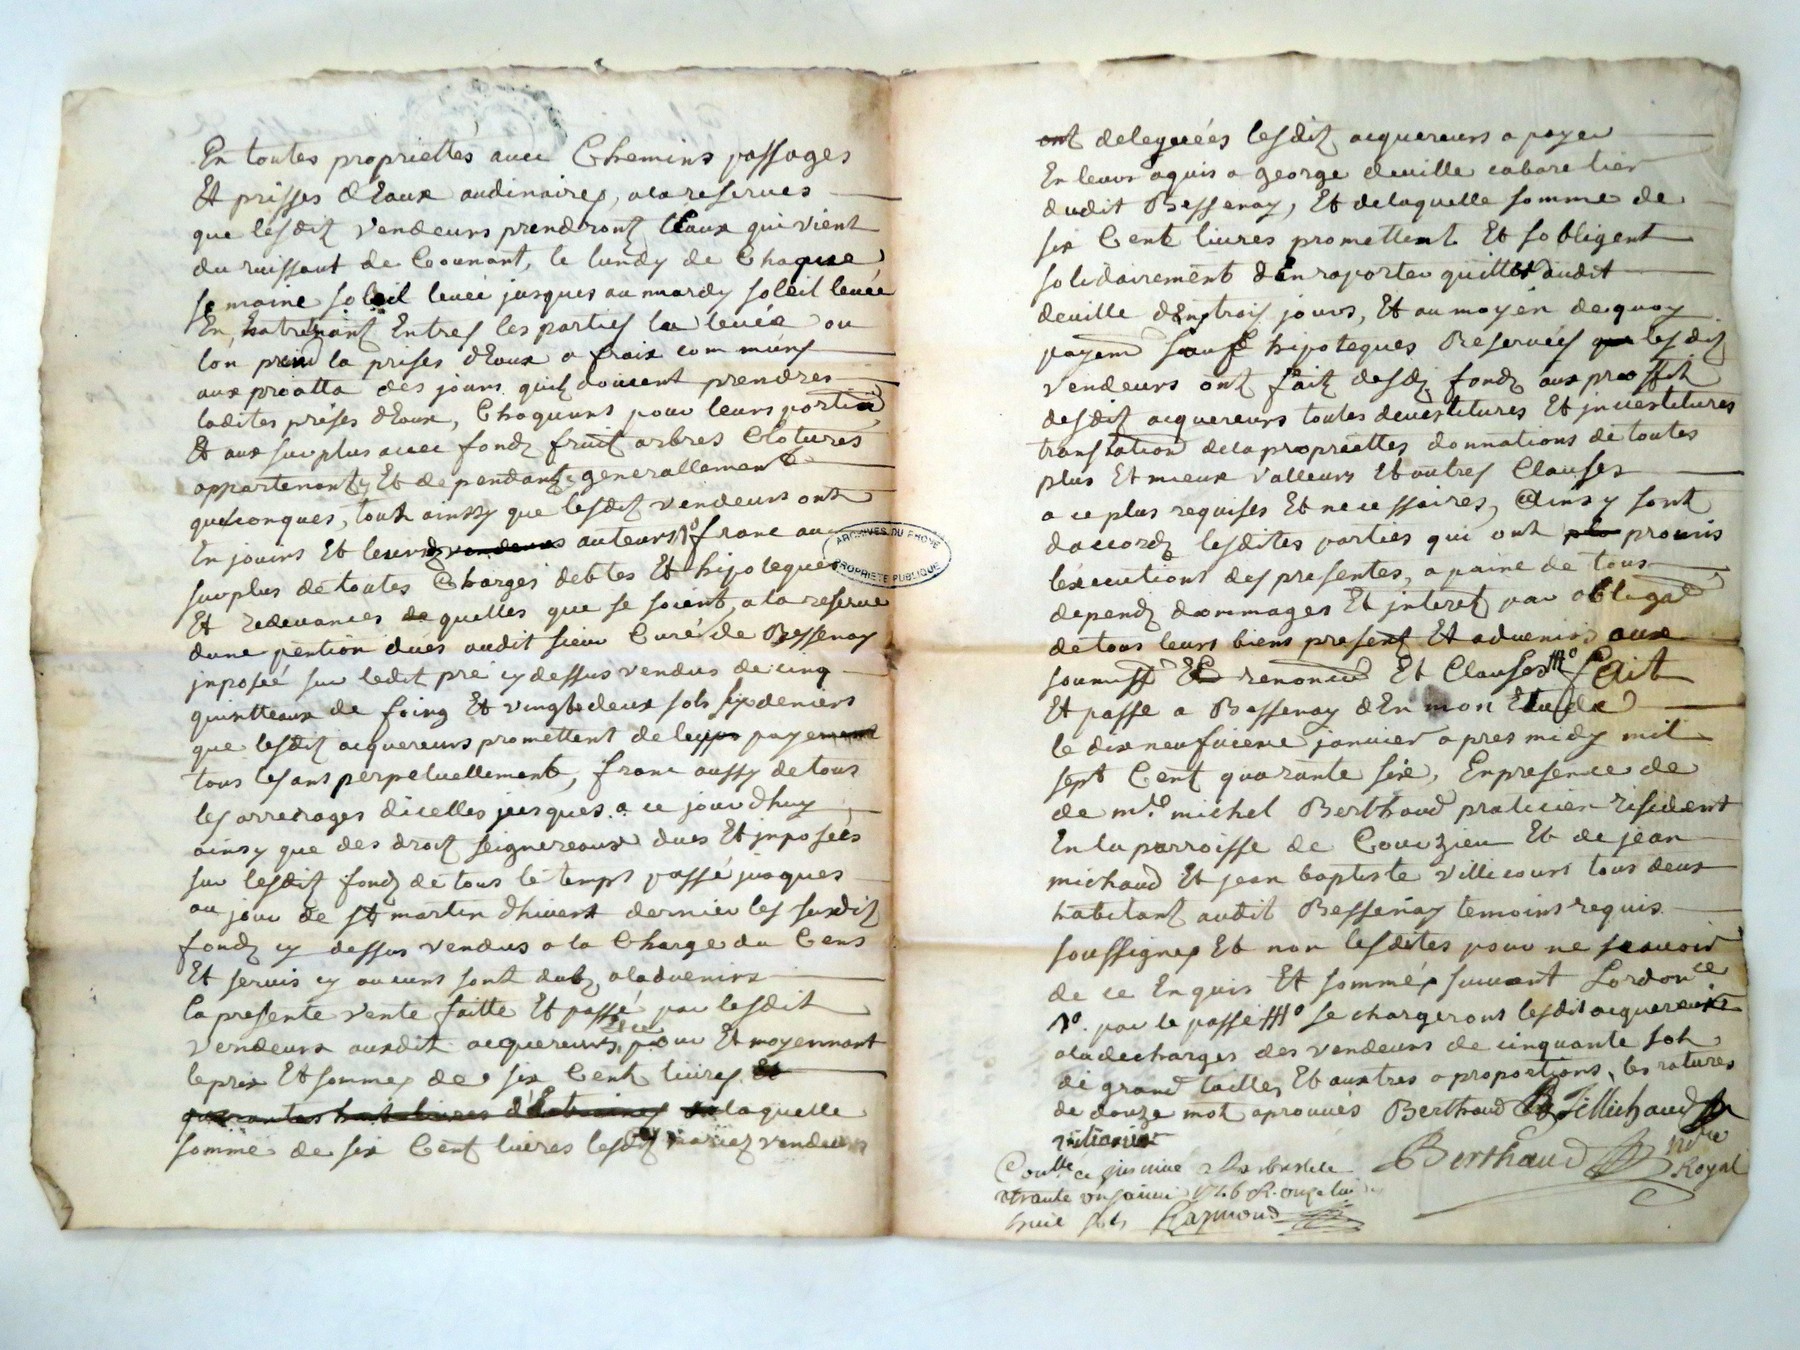 En toutes propriettés avec Chemins passages
Et prisses d'Eaux ordinaires, ala reserves
que lesdits vendeurs prendront l'Eaux qui vient
du ruissaut de Counant, le lundy de Chaque
semaine soleil levée jusques au mardy soleil levée
En Entretenant Entres les parties la levée ou
lon prend la prises d'Eaux a fraix communs
aux proatta des jours quils doivent prendres
ladites prises d'Eaux, Chaquuns pour leurs portion
Et aux surplus avec fonds fruits arbres Clotures
appartenants Et dependants generallement
quelconques, tout ainssy que lesdits vendeurs ont
En jouins Et leurs vendeurs auteurs 1º franc au
surplus de toutes Charges debtes Et hipoteques
Et redevances de quelles que se soient, ala reserve
dune pention dües audit sieur Curé de Bessenay
jnposée sur ledit pré cy dessus vendus de cinq
quintteaux de foing Et vingt deux sols six deniers
que lesdits acquereurs promettent de payement
tous les ans perpetuellement, franc aussy de tous
les arrerages dicelles jusques a ce jourdhuy
ainsy que des droits seignereaux dues Et jnposées
sur lesdits fonds de tous le temps passé jusques
au jour de st martin dhivert dernier les susdits
fonds cy dessus vendus a la Charge du Cens
Et servis cy aucuns sont dubs aladvenirs
la presente vente faitte Et passé par lesdit
vendeurs ausdit acquereurs, pour Et moyennant
le prix Et sommes de six Cent livres Et
quarantes huit livres d'Estraines de laquelle
somme de six Cent livres lesdits mariez vendeurs
ont deleguées lesdits acquereurs a payer
En leurs aquis a George deville cabaretier
dudit Bessenay, Et delaquelle somme de
six Cent livres promettent Et sobligent
solidairement d'En raporter quittes dudit
deville d'En trois jours, Et au moyen de quoy
payem sauf hipoteques Reservées que lesdits
vendeurs ont fait desdits fonds aux proffit
desdits acquereurs toutes devestitures Et jnvestitures
translation dela propriettes donnations de toutes
plus Et mieux valleurs Et autres Clauses
a ce plus requises Et necessaires, Ainsy sont
daccords lesdites parties qui ont promis
l'exécutions des presentes, a paine de tous
depends dommages Et jnterets par obligaõn
de tous leurs biens present Et advenirs aux
soumiss Et renoncia Et Clauses #º fait
Et passe a Bessenay d'En mon Etude
le dix neufvieme janvier apres midy mil
sept Cent quarante six, En presence de
de mre michel Berthaud praticien résident
En la parroisse de Courzieu Et de jean
michaud Et jean baptiste villecourt tous deux
habitants audit Bessenay temoins requis
soussignes Et non lesdites pour ne scavoir
de ce Enquis Et sommés suivant Lordonce
1º. par le passé #º se chargeront lesdit acquereurs
ala decharges des vendeurs de cinquante sols
de grand tailles Et auxtres a proportions, les ratures
de douze mots aprouvés Berthaud J Michaud
Berthaud nore Royal
Raymond
ARCHIVES DU RHONE
PROPRIETE PUBLIQUE